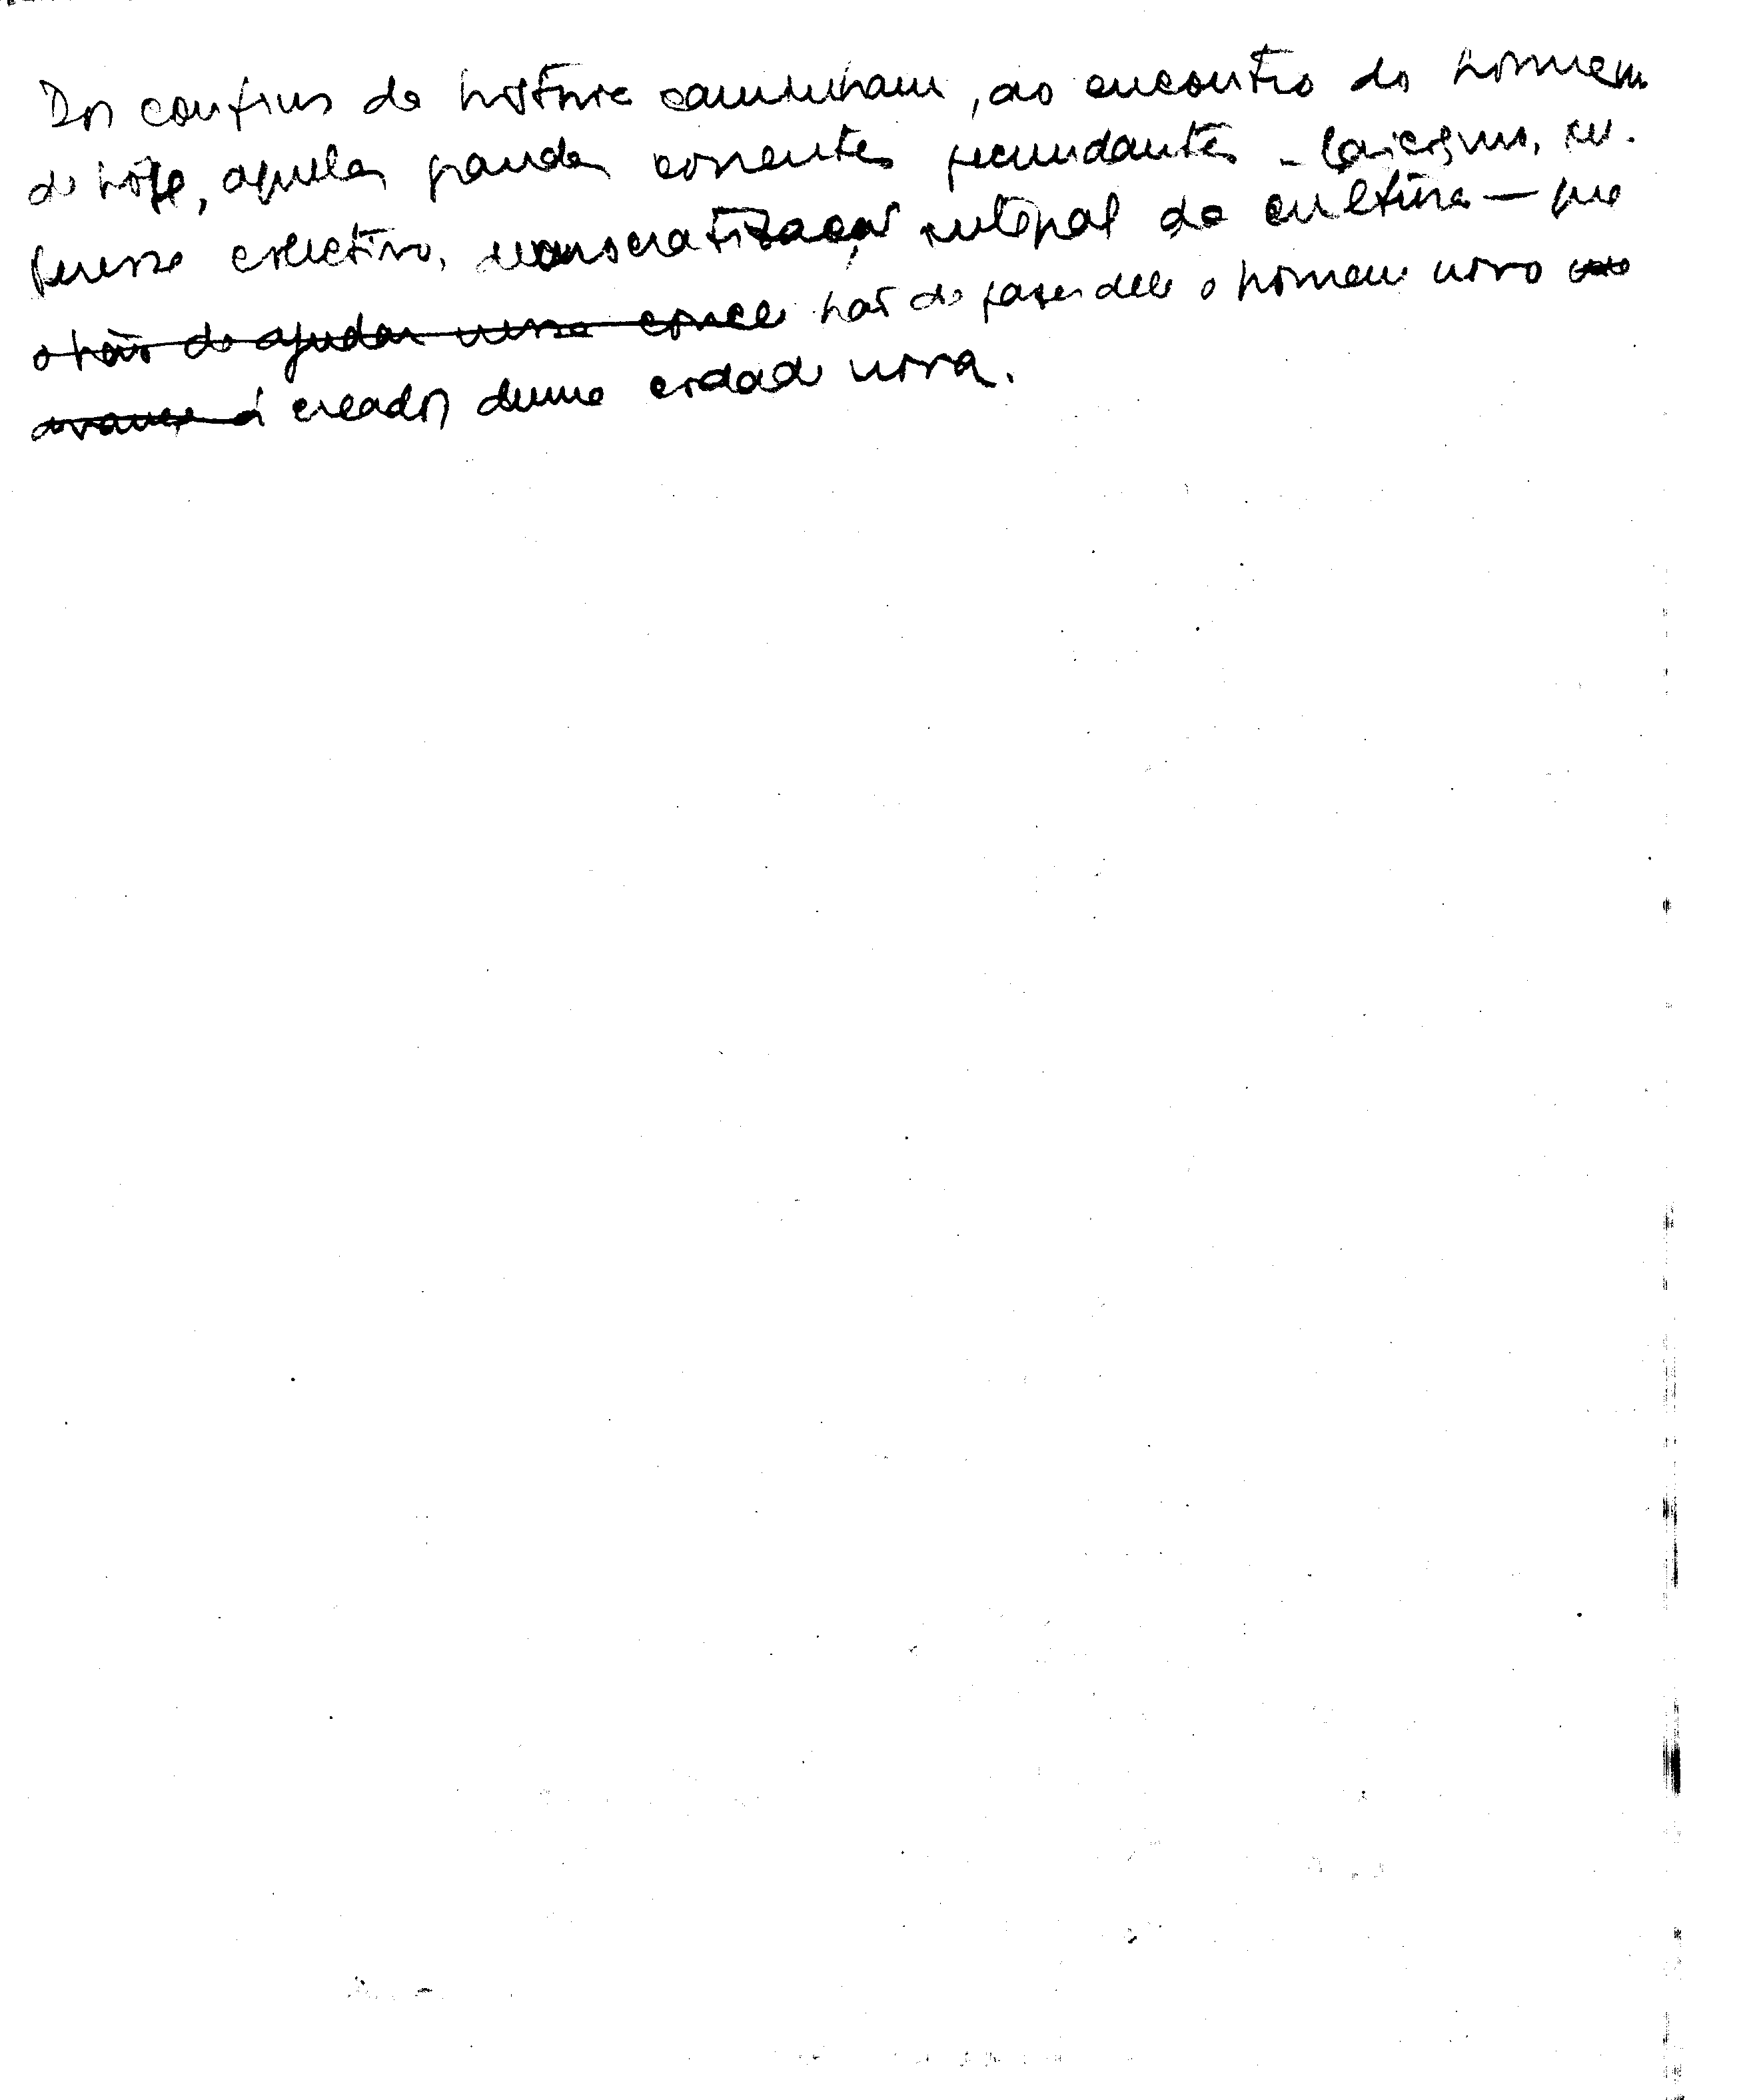 Dos confins da história caminham, ao encontro do homem
de hoje, aquelas grandes correntes fecundantes – laicismo, in-
teresse colectivo, democratização integral da cultura — que
o hão de ajudar nessa hão de fazer dele o homem novo
avance á creador duma cidade nova.